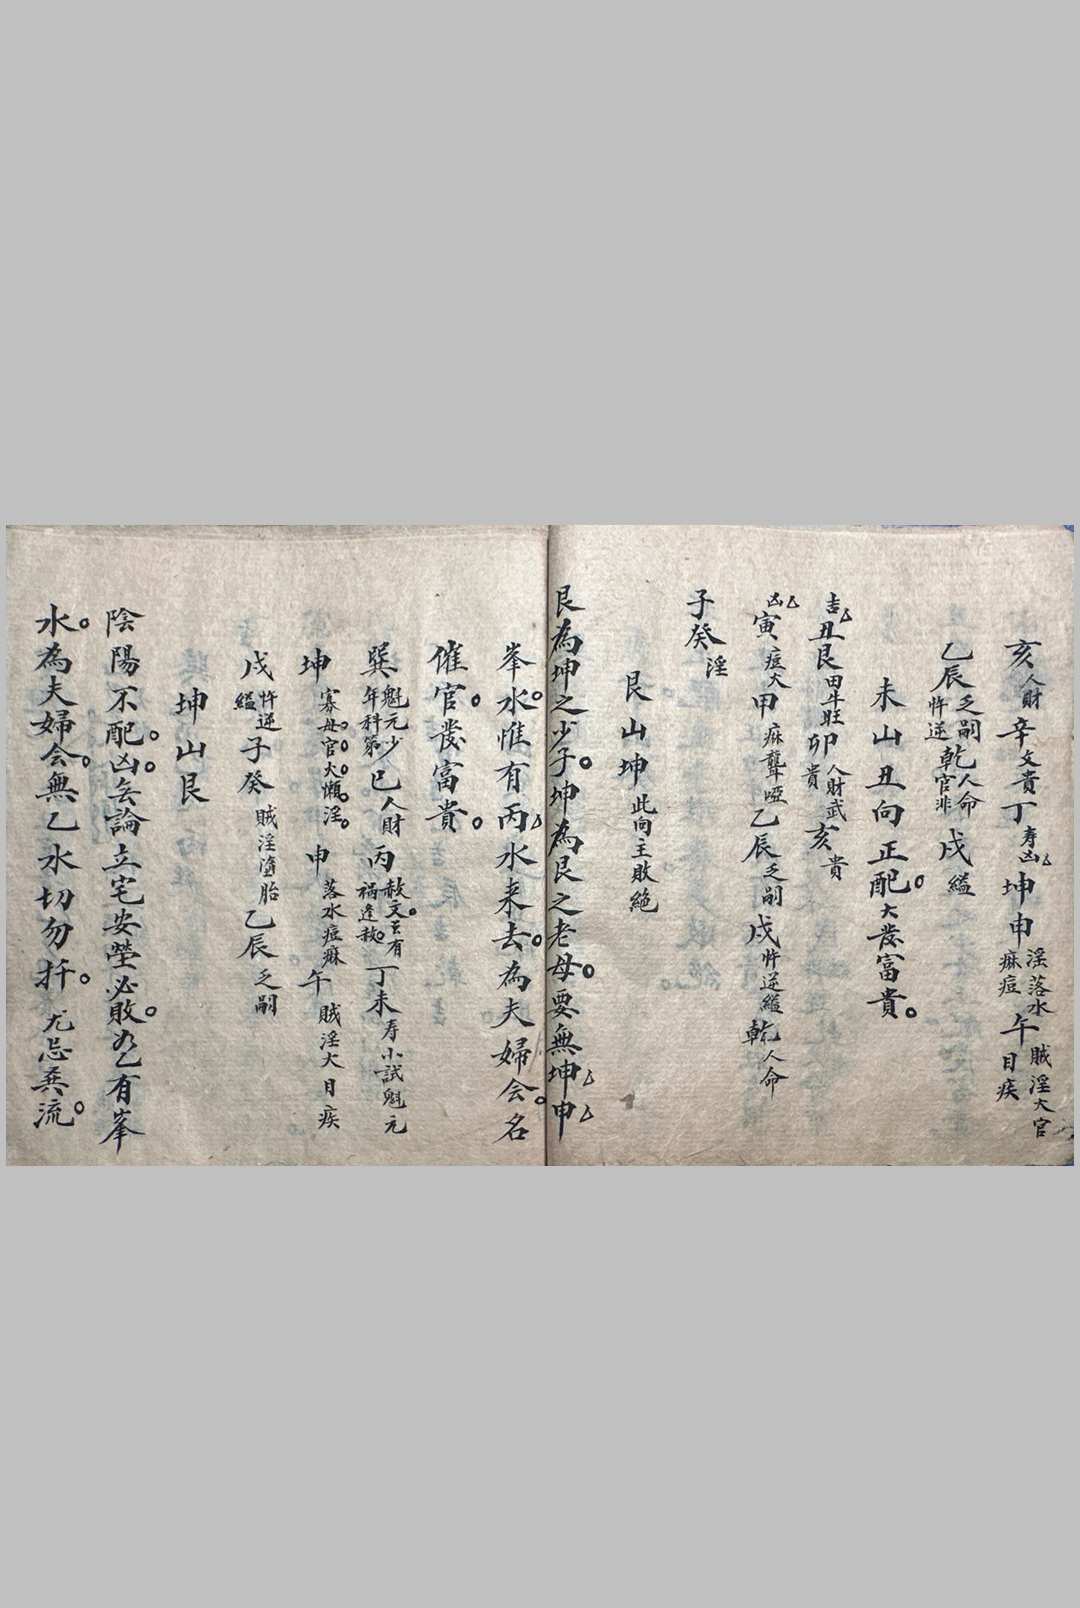 亥人財辛文貴丁寿凶坤申淫落水痳痘午賊淫大官目疾
乙辰乏嗣忤逆乾人命官非戌縊
未山丑向正配。大發富貴。
吉丑艮田牛旺卯人財武貴亥貴
凶寅痘犬甲痳聾啞乙辰乏嗣戌忤逆縊乾人命
子癸淫
艮山坤此向主敗絕
艮為坤之少子。坤為艮之老母。要無坤申
峯水。惟有丙水来去。為夫婦会。名
催官。發富貴。
巽魁元少年科第巳人財丙赦文。主有禍逢赦。丁未寿小試魁元
坤寡母。官。犬。懶。淫。申落水痘痳午賊淫大目疾
戌忤逆縊子癸賊淫墮胎乙辰乏嗣
坤山艮
陰陽不配。凶。矣論立宅安塋必敗。為乙有峯
水。為夫婦会。無乙水切勿扦。尤忌兼流。